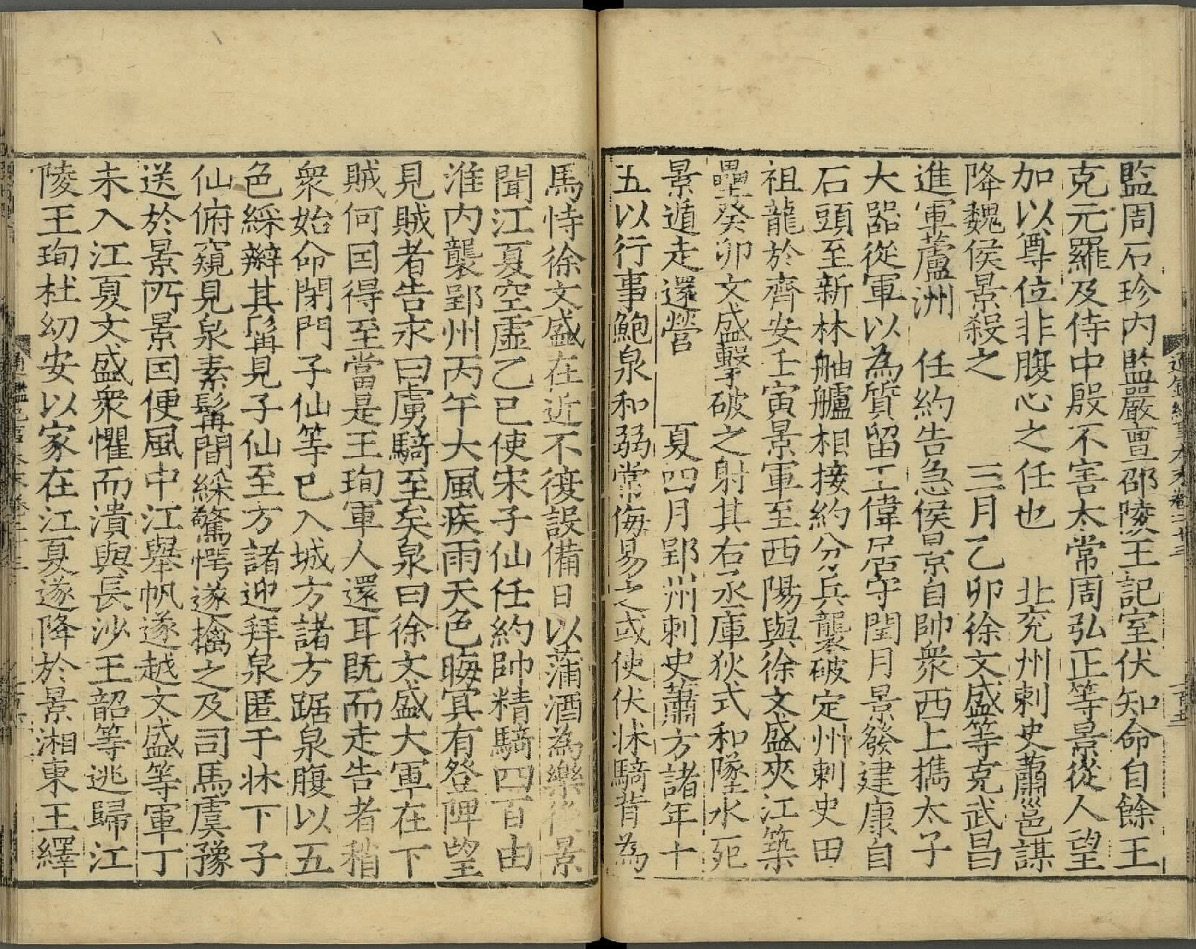 監周石珍内監嚴亶邵陵王記室伏知命自餘王
克元羅及侍中殷不害太常周弘正等景從人望
加以尊位非腹心之任也　北兖州刺史蕭邕謀
降魏侯景殺之　三月乙卯徐文盛等克武昌
進軍蘆洲　任約告急侯景自帥衆西上擕太子
大器從軍以為質留王偉居守閏月景發建康自
石頭至新林舳艫相接約分兵襲破定州刺史田
祖龍於齊安壬寅景軍至西陽與徐文盛夾江築
壘癸卯文盛擊破之射其右丞庫狄式和墜水死
景遁走還營　夏四月郢州刺史蕭方諸年十
五以行事鮑泉和弱常侮易之或使伏牀騎背為
馬恃徐文盛在近不復設備日以蒲酒為樂侯景
聞江夏空虛乙巳使宋子仙任約帥精騎四百由
淮内襲郢州丙午大風疾雨天色晦冥有登陴望
見賊者告泉曰虜騎至矣泉曰徐文盛大軍在下
賊何因得至當是王珣軍人還耳既而走告者稍
衆始命閉門子仙等已入城方諸方踞泉腹以五
色綵辮其髯見子仙至方諸迎拜泉匿于牀下子
仙俯窺見泉素髯間綵驚愕遂擒之及司馬虞豫
送於景所景因便風中江舉帆遂越文盛等軍丁
未入江夏文盛衆懼而潰與長沙王韶等逃歸江
陵王珣杜幼安以家在江夏遂降於景湘東王繹